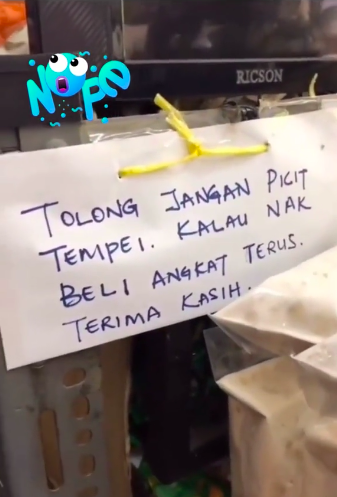 NOPE
RICSON
TOLONG JANGAN PICIT
TEMPEI. KALAU NAK
BELI ANGKAT TERUS.
TERIMA KASIH.